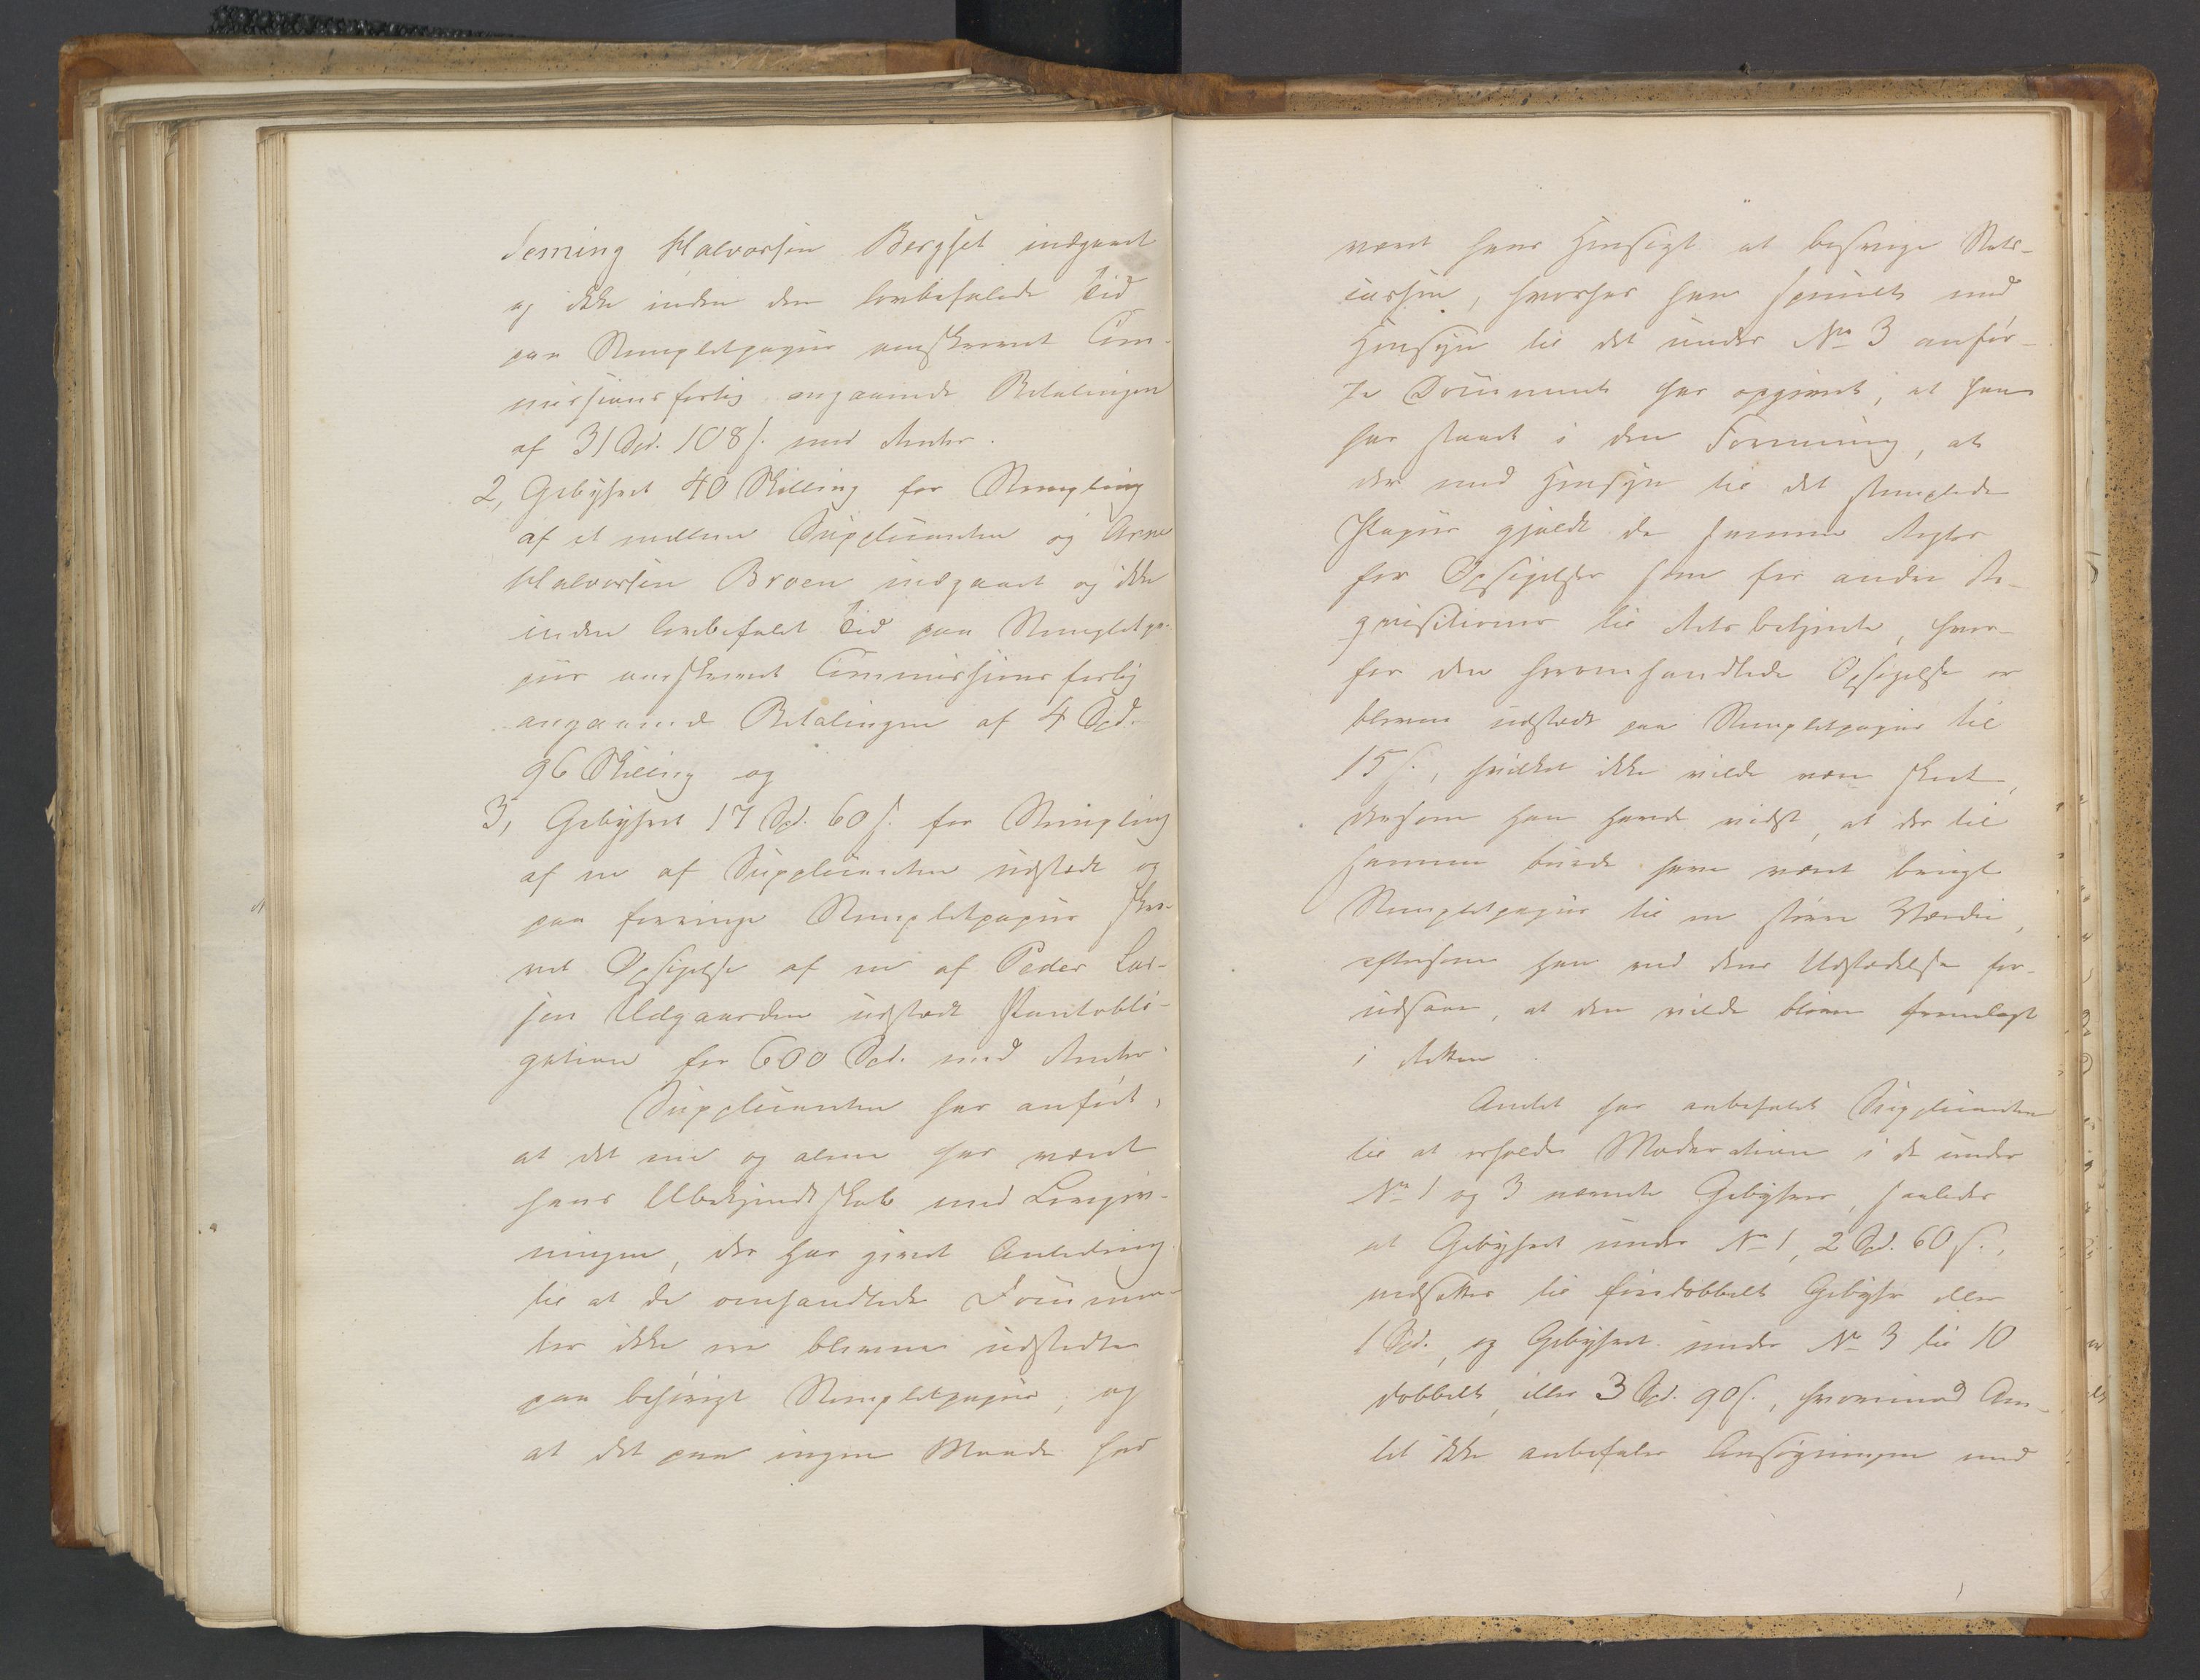 Seming Halvorsen Bergset indgaaet
og ikke inden den lovbefalede Tid
paa Stempletpapir omskrevet Com-
missionsforlig angaaende Betalingen
af 31 Spd. 108 s. med Renter.
2, Gebyhret 40 Skilling for Stempling
af et mellem Supplicanten og Arne
Halvorsen Broen indgaaet og ikke
inden lovbefalet Tid paa Stempletpa-
pir omskrevet Commissionsforlig
angaaende Betalingen af 4 Spd.
96 Skilling og
3, Gebyhret 17 Spd. 60 s. for Stempling
af en af Supplicanten udstedt og
paa forringe Stempletpapir skre-
vet Opsigelse af en af Peder Lar-
sen Udgaarden udstedt Pantobli-
gation for 600 Spd. med Renter.
Supplicanten har anført,
at det ene og alene har været
hans Ubekjendtskab med Lovgiv-
ningen, der har givet Anledning
til at de omhandlede Documen-
ter ikke ere blevne udstedte
paa behørigt Stempletpapir, og
at det paa ingen Maade har
været hans Hensigt at besvige Stats-
cassen, hvorhos han specielt med
Hensyn til det under No 3 anfør-
te Document har opgivet, at han
har staaet i den Formening, at
der med Hensyn til det stemplede
Papir gjaldt de samme Regler
for Opsigelser som for andre Re-
qvisitioner til Retsbetjente, hvor-
for den heromhandlede Opsigelse er
bleven udstedt paa Stempletpapir til
15 s., hvilket ikke vilde være skeet,
dersom han havde vidst, at der til
samme burde have været brugt
Stempletpapir til en større Værdie,
eftersom han ved dens Udstedelse for-
udsaae, at den vilde blive fremlagt
i Retten.
Amtet har anbefalet Supplicanten
til at erholde Moderation i de under
No 1 og 3 nævnte Gebyhrer, saaledes
at Gebyhret under No 1, 2 Spd. 60 s.,
nedsættes til firdobbelt Gebyhr eller
1 Spd., og Gebyhret under No 3 til 10
dobbelt, eller 3 Spd. 90 s., hvorimod Am-
tet ikke anbefaler Ansøgningen med